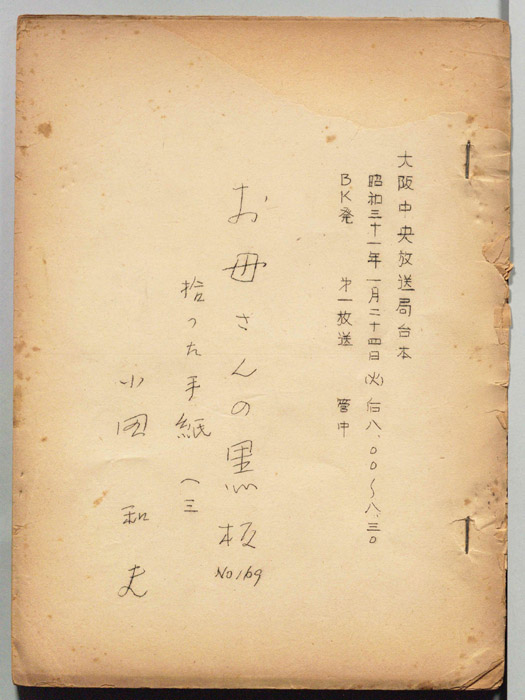 大阪中央放送局台本
昭和三十一年一月二十四日(火)后八.〇〇〜八.三〇
BK発 才一放送 管中
お母さんの黒板 No169
拾った手紙 (三
小田和夫